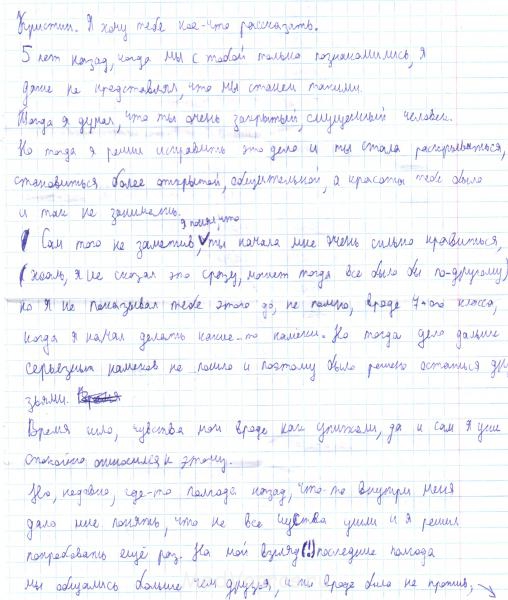 Кристин. Я хочу тебе кое-что рассказать.
5 лет назад, когда мы с тобой только познакомились, я
даже не представлял, что мы станем такими.
Тогда я думал, что ты очень закрытый, смущенный человек.
Но тогда я решил исправить это дело и ты стала раскрываться,
становиться более открытой, общительной, а красоты тебе было
и так не занимать.
я понял, что
Сам того не заметив, ты начала мне очень сильно нравиться,
(жаль, я не сказал это сразу, может тогда все было бы по-другому)
но я не показывал тебе этого до, не помню, вроде 7-ого класса,
когда я начал делать какие-то намеки. Но тогда дело дальше
серьезных намеков не пошло и поэтому было решено остаться дру
зьями. Время
Время шло, чувства мои вроде как утихали, да и сам я уже
спокойно относился к этому.
Но, недавно, где-то полгода назад, что-то внутри меня
дало мне понять, что не все чувства ушли и я решил
попробовать ещё раз. На мой взгляд (!) последние полгода
мы общались больше чем друзья, и ты вроде была не против,